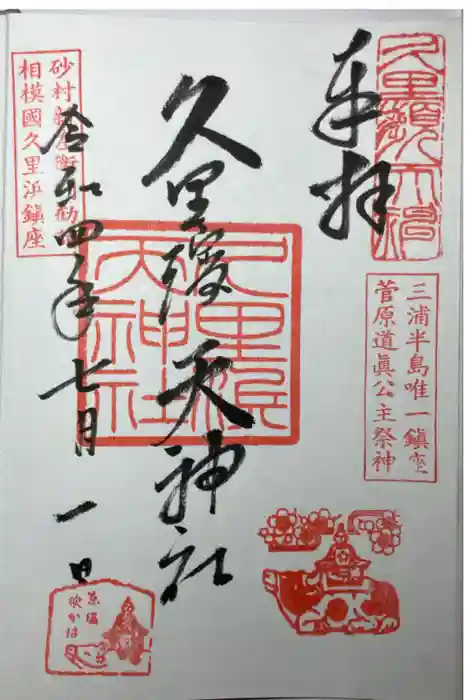 奉拝
三浦半島唯一鎭座
菅原道眞公主祭神
久里濱天神社
久里濱天神社
砂村新左衛門勧
相模國久里浜鎭座
令和四年七月一日
吹かば